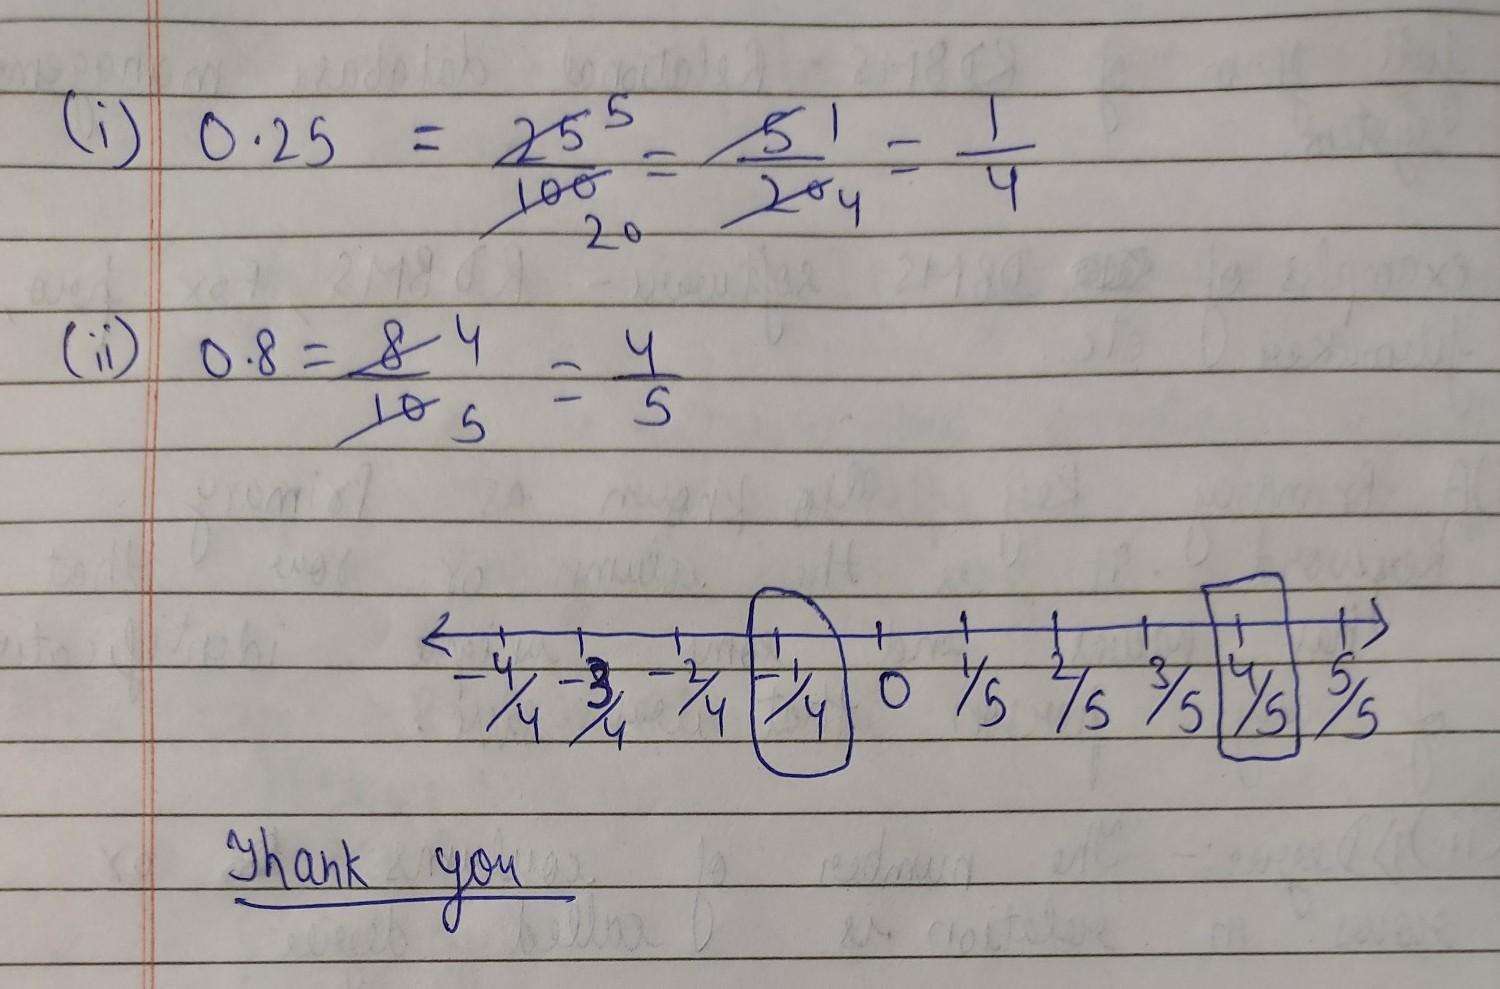 (i) 0.25 = 25/100 5 20 = 5/20 1 4 = 1/4
(ii) 0.8 = 8/10 4 5 = 4/5
-4/4 -3/4 -2/4 -1/4 0 1/5 2/5 3/5 4/5 5/5
Thank you